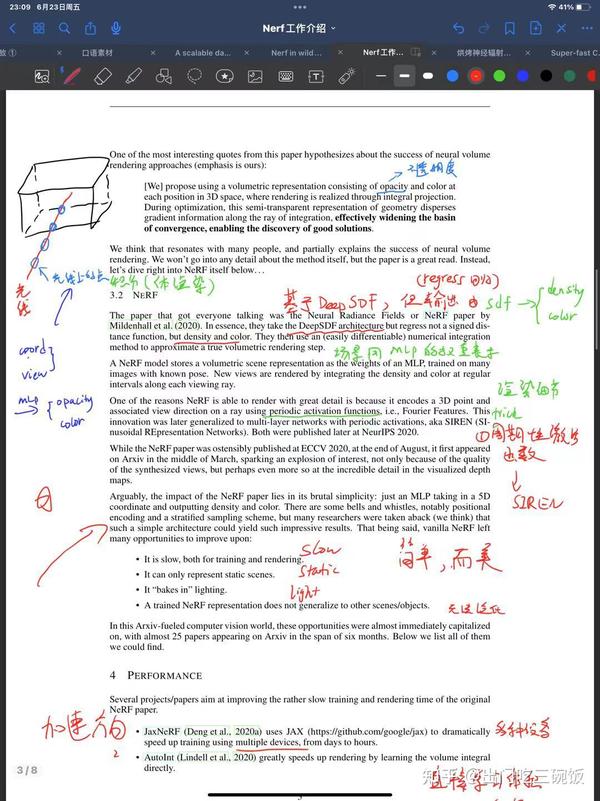 23:09 6月23日周五
41%
Nerf工作介绍
放①
口语素材
A scalable da...
Nerf in wild
Nerf工作...
烘烤神经辐射...
Super-fast C...
One of the most interesting quotes from this paper hypothesizes about the success of neural volume
rendering approaches (emphasis is ours):
不透明度
[We] propose using a volumetric representation consisting of opacity and color at
each position in 3D space, where rendering is realized through integral projection.
During optimization, this semi-transparent representation of geometry disperses
gradient information along the ray of integration, effectively widening the basin
of convergence, enabling the discovery of good solutions.
We think that resonates with many people, and partially explains the success of neural volume
rendering. We won't go into any detail about the method itself, but the paper is a great read. Instead,
let's dive right into NeRF itself below...
光线
(体渲染)
(regress 回归)
3.2 NERF
基于DeepSDF, 但输出由 sdf → { density
color
The paper that got everyone talking was the Neural Radiance Fields or NeRF paper by
Mildenhall et al. (2020). In essence, they take the DeepSDF architecture but regress not a signed dis-
tance function, but density and color. They then use an (easily differentiable) numerical integration
method to approximate a true volumetric rendering step.
场景用 MLP 的权重表示
coord
view
MLP → { opacity
color
A NeRF model stores a volumetric scene representation as the weights of an MLP, trained on many
images with known pose. New views are rendered by integrating the density and color at regular
intervals along each viewing ray.
渲染细节
trick
One of the reasons NeRF is able to render with great detail is because it encodes a 3D point and
associated view direction on a ray using periodic activation functions, i.e., Fourier Features. This
innovation was later generalized to multi-layer networks with periodic activations, aka SIREN (SI-
nusoidal REpresentation Networks). Both were published later at NeurIPS 2020.
①周期性激活
函数
↓
SIREN
While the NeRF paper was ostensibly published at ECCV 2020, at the end of August, it first appeared
on Arxiv in the middle of March, sparking an explosion of interest, not only because of the quality
of the synthesized views, but perhaps even more so at the incredible detail in the visualized depth
maps.
Arguably, the impact of the NeRF paper lies in its brutal simplicity: just an MLP taking in a 5D
coordinate and outputting density and color. There are some bells and whistles, notably positional
encoding and a stratified sampling scheme, but many researchers were taken aback (we think) that
such a simple architecture could yield such impressive results. That being said, vanilla NeRF left
many opportunities to improve upon:
简单,而美
• It is slow, both for training and rendering. slow
• It can only represent static scenes. static
• It "bakes in" lighting. light
• A trained NeRF representation does not generalize to other scenes/objects.
In this Arxiv-fueled computer vision world, these opportunities were almost immediately capitalized
on, with almost 25 papers appearing on Arxiv in the span of six months. Below we list all of them
we could find.
4 PERFORMANCE
Several projects/papers aim at improving the rather slow training and rendering time of the original
NeRF paper.
加速方向
• JaxNeRF (Deng et al., 2020a) uses JAX (https://github.com/google/jax) to dramatically
speed up training using multiple devices, from days to hours.
多种设备
• AutoInt (Lindell et al., 2020) greatly speeds up rendering by learning the volume integral
directly.
3 / 8
知乎 @出门吃三碗饭